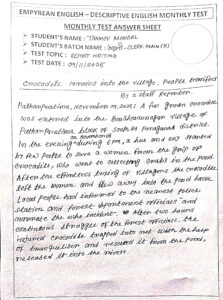 EMPYREAN ENGLISH – DESCRIPTIVE ENGLISH MONTHLY TEST
MONTHLY TEST ANSWER SHEET
➤ STUDENT'S NAME : TANMOY MONDAL
➤ STUDENT'S BATCH NAME : CLERK MAIN (B)
➤ TEST TOPIC : REPORT WRITING
➤ TEST DATE : 09/11/2025
Crocodile into the village, People terrified
By a staff reporter
Patharpratima, November 2025: A five crocodile
was entered into the village of
Patharpratima block of south 24 parganas district.
In the evening during 6 P.M, a hue and cry started
by few people to save a women from the grip of
crocodile, who went to catching crabs in the pond.
After the effortless timing of villagers the crocodile
left the women and into the pond back.
Local people had informed to the nearest police
station and forest department officials and
narrate the whole incident. After two hours
continuous struggle of the forest officials, the
injured crocodile trapped into net with the help
of tranquilison and rescued it from the pond,
released it into the river.